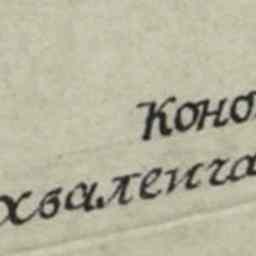 Коно
хваленга